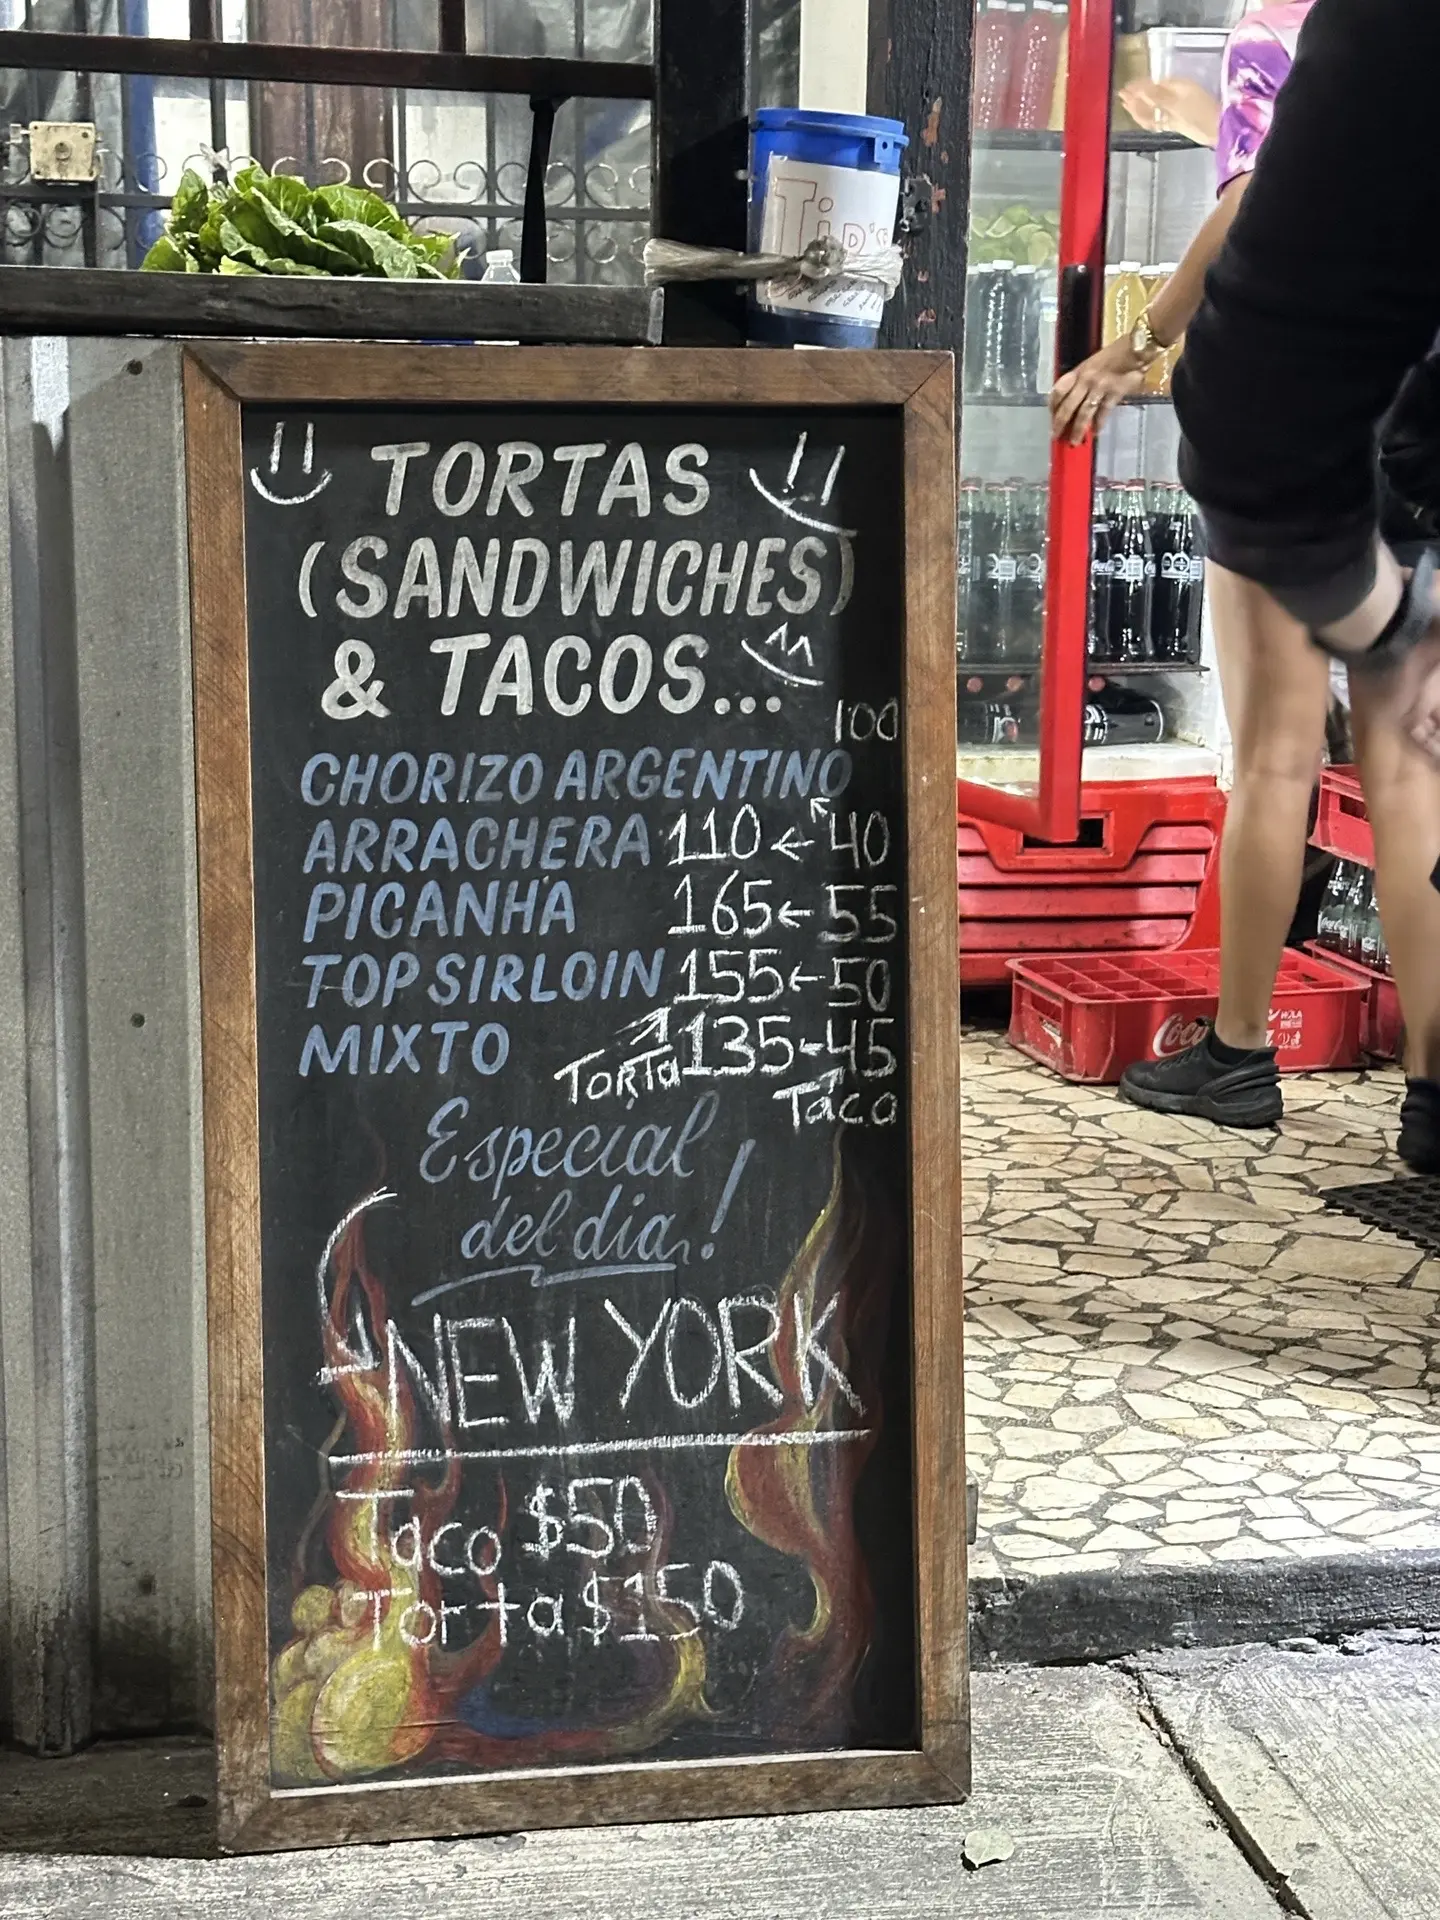 Tip's
TORTAS
(SANDWICHES)
& TACOS...
100
CHORIZO ARGENTINO
ARRACHERA 110 ← 40
PICANHA 165 ← 55
TOP SIRLOIN 155 ← 50
MIXTO 135 - 45
TORTA
Taco
Especial
del dia!
NEW YORK
Taco $50
Torta $150
Coca-Cola
Coca-Cola
Coca
HOLA